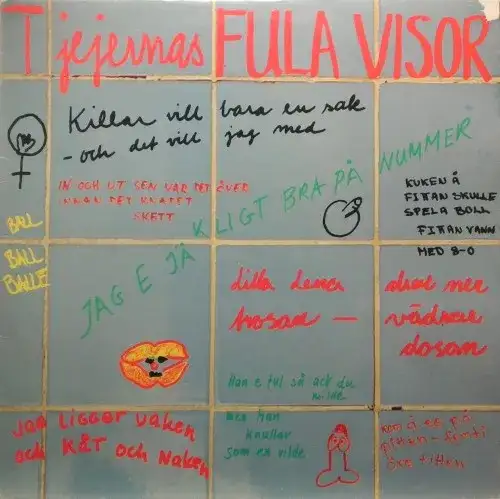 Tjejernas FULA VISOR
Killar vill bara en sak
- och det vill jag med
IN OCH UT SEN VAR DET ÖVER
INNAN DET
SKETT
JAG E JÄKLIGT BRA PÅ NUMMER
KUKEN Å
FITTAN SKULLE
SPELA BOLL
FITTAN VANN
MED 8-0
BALL
BALL
BALLE
lilla Lena drar ner
trosan — vädrar
dosan
Han e ful så att du
men han
knullar
som en vilde
Jag LIGGER VAKEN
och KÅT och NaKEN
KOM Å SE PÅ
fittan - femti
öre titten